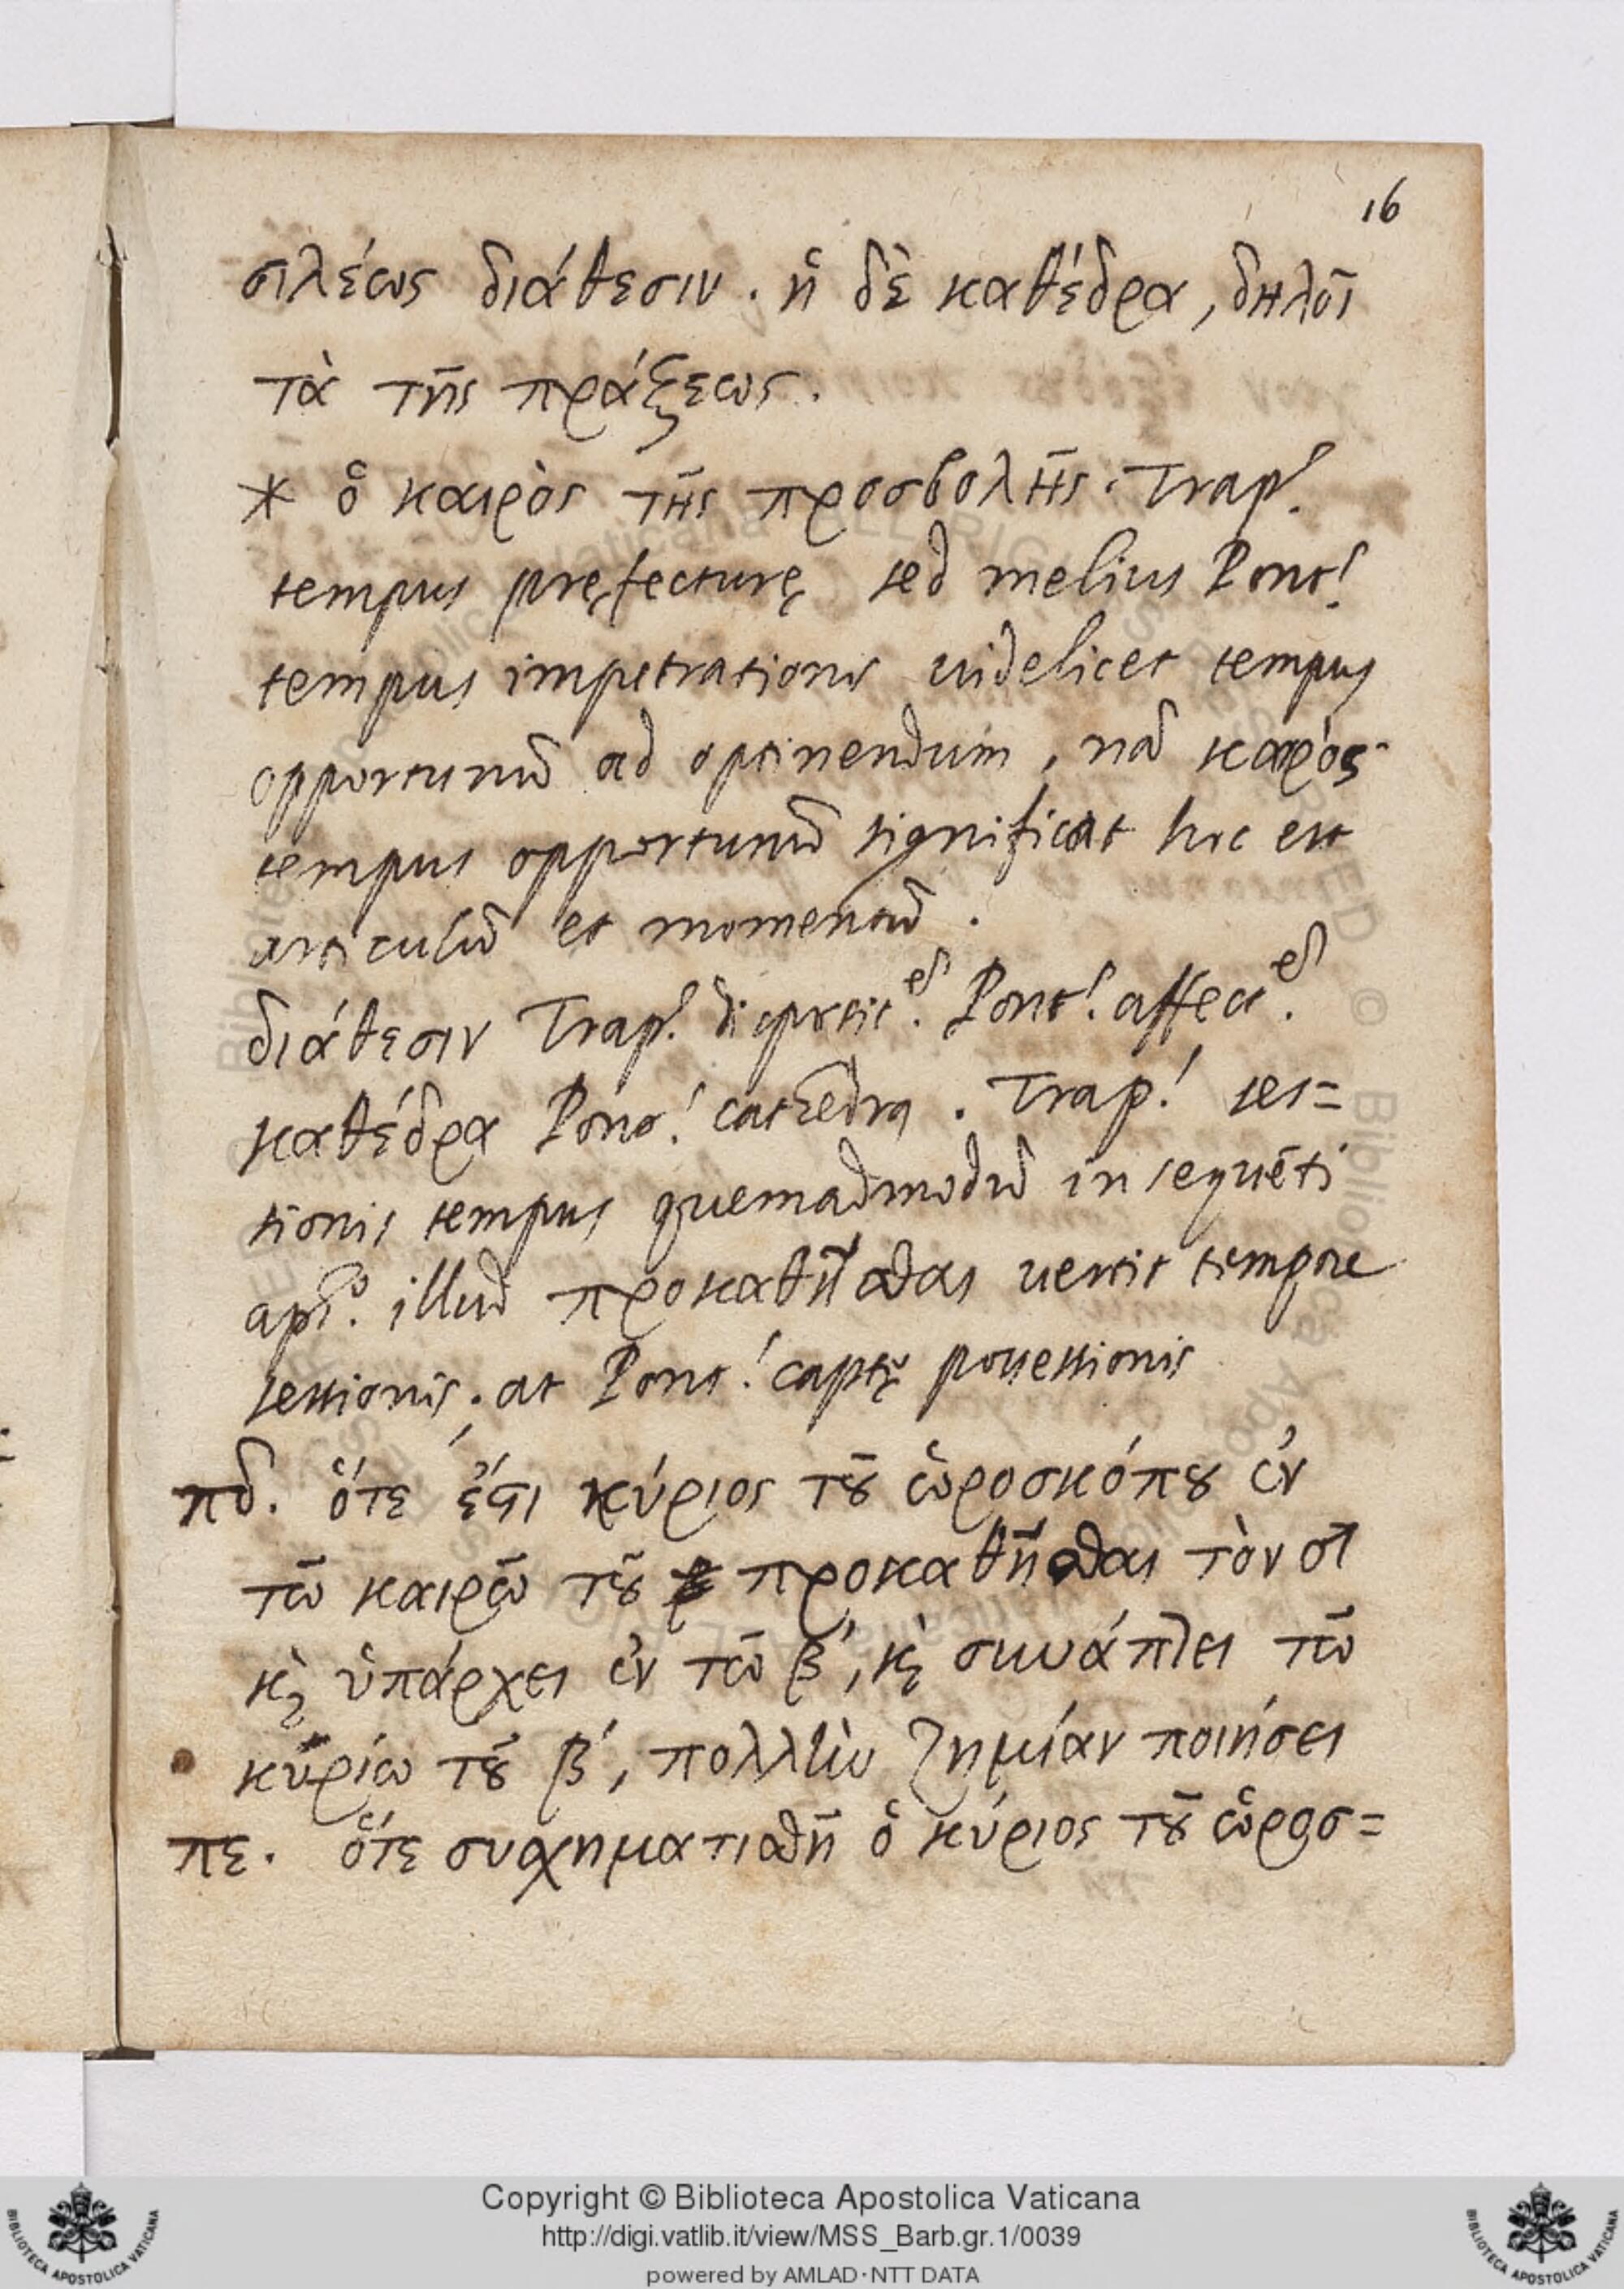 16
σιλέως διάθεσιν. ἡ δὲ καθέδρα, δηλοῖ
τὰ τῆς πράξεως.
* ὁ καιρὸς τῆς προσβολῆς. Trap.
tempus pręfecturę sed melius Pont.
tempus impetrationis uidelicet tempus
opportunū ad optinendum, nā καιρὸς
tempus opportunū significat hoc est
articulū et momentū.
διάθεσιν Trap. disposit.em Pont. affect.em
καθέδρα Pont. cathedra. Trap. ses=
sionis tempus quemadmodū in sequēti
illud προκαθῆσθαι uertit tempore
sessionis. at Pont. captę possessionis
πδ. ὅτε ἔστι κύριος τοῦ ὡροσκόπου ἐν
τῶ καιρῶ τοῦ προκαθῆσθαι τὸν ♂
κỳ ὑπάρχει ἐν τῶ β΄, κỳ συνάπτει τῶ
κυρίω τοῦ β΄, πολλὴν ζημίαν ποιήσει
πε. ὅτε συσχηματισθῆ ὁ κύριος τοῦ ὡροσ=
Copyright © Biblioteca Apostolica Vaticana
http://digi.vatlib.it/view/MSS_Barb.gr.1/0039
powered by AMLAD·NTT DATA
BIBLIOTECA APOSTOLICA VATICANA
BIBLIOTECA APOSTOLICA VATICANA